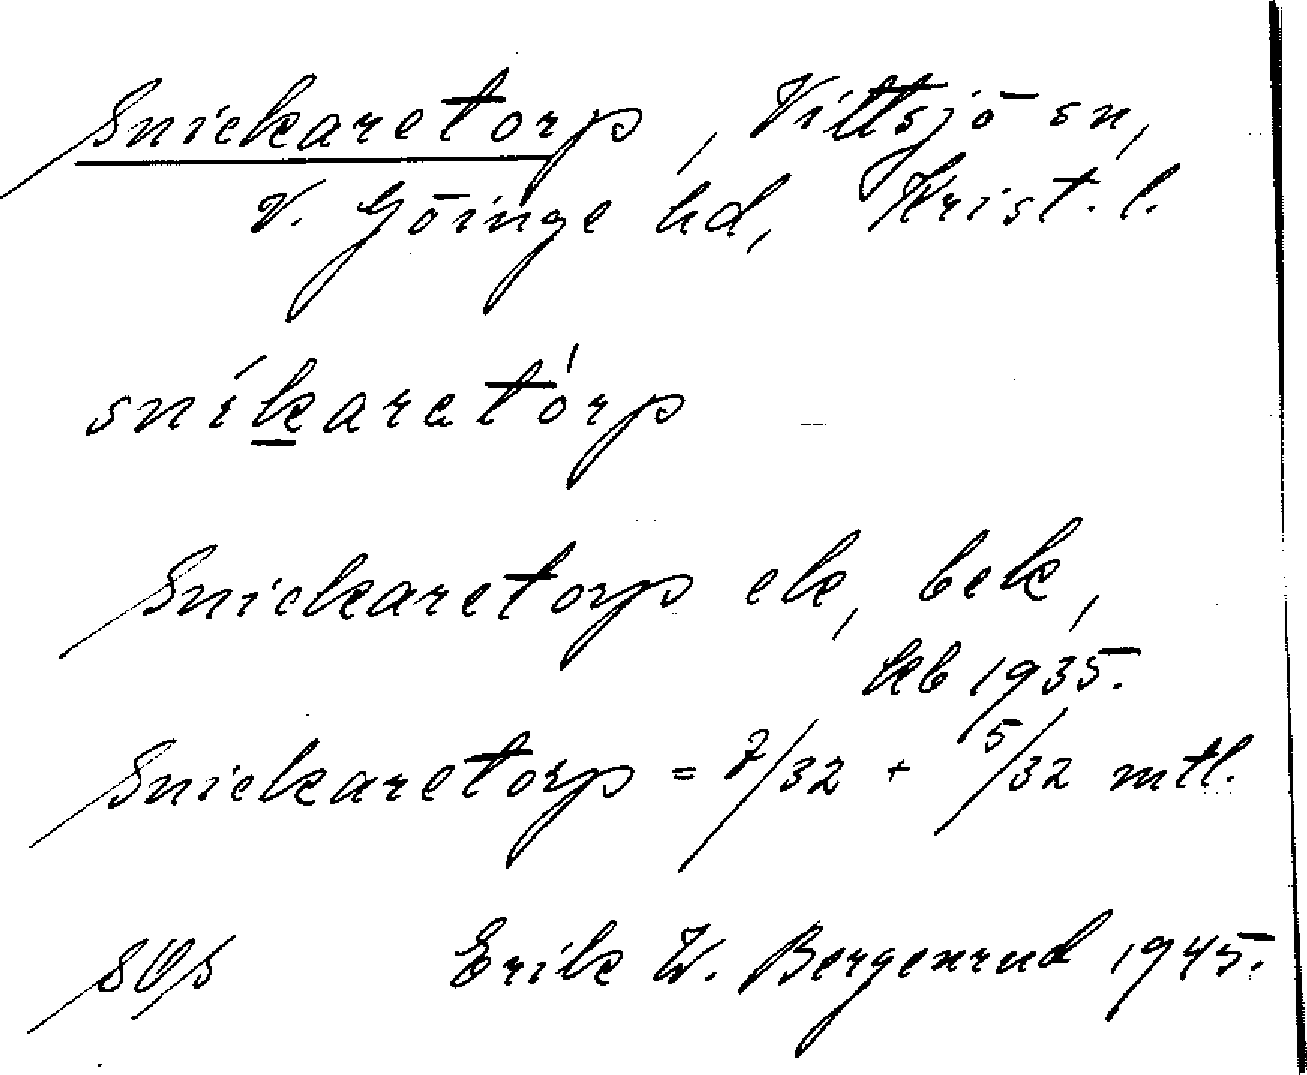 Snickaretorp, Vittsjö sn,
V. Göinge hd, Krist. l.
sníkaretórp
Snickaretorp ek, bek,
keb 1935.
Snickaretorp = 7/32 + 5/32 mtl.
Erik W. Bergenrud 1945.